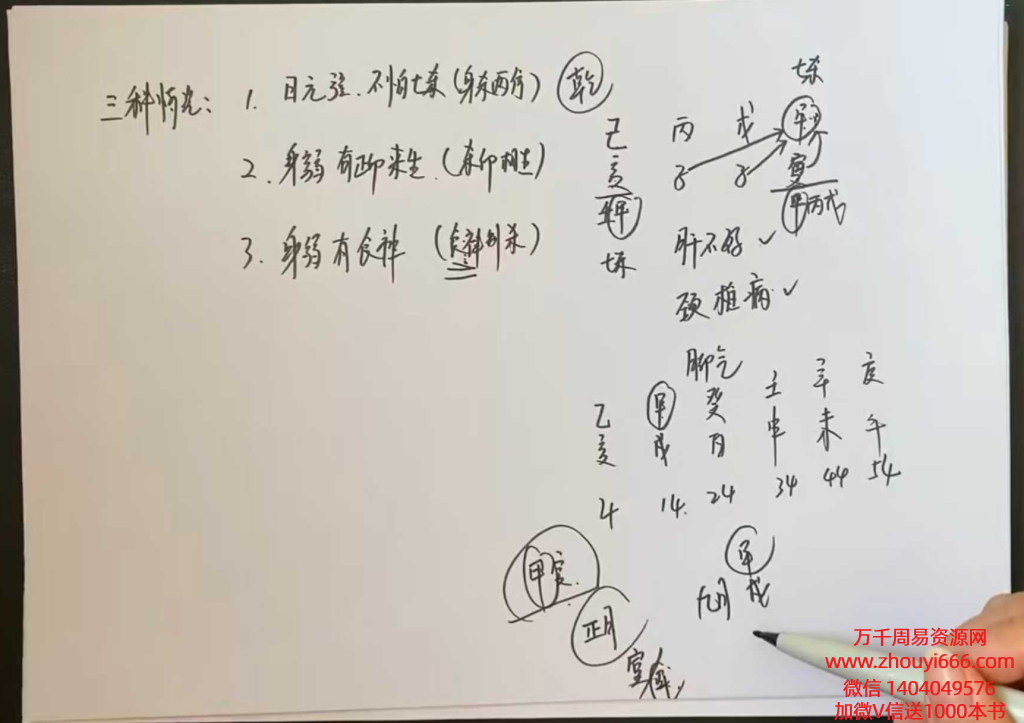 三种情况：1. 日元强．不怕七杀（身杀两停）
2. 身弱 有正印来生．（杀印相生）
3. 身弱有食神 （食神制杀）
乾
七杀
己 丙 戊 甲
亥 子 子 寅
壬甲 甲丙戊
七杀
肝不好 ✓
颈椎病 ✓
脚气
乙 甲 癸 壬 辛
亥 戌 申 未 午
4 14. 24 34 44 54
甲寅.
正月
甲
九月 戌
万千周易资源网
www.zhouyi666.com
微信 1404049576
加微V信送1000本书